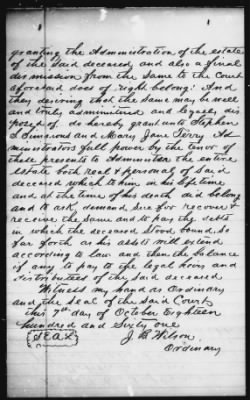 granting the Administration of the estate
of the said deceased and also a final
dismission from the same to the Court
aforesaid does of right belong: And
they desiring that the same may be well
and truly administered and legally dis
posed of do hereby grant unto Stephen
Simmons and Mary Jane Terry Ad
ministrators full power by the tenor of
these presents to Administer the entire
estate both real & personal of said
deceased which to him in his lifetime
and at the time of his death did belong
and to ask, demand, sue for recover &
receive the same and to pay the debts
in which the deceased stood bound so
far forth as his assets will extend
according to law and then the balance
if any to pay to the legal heirs and
distributees of the said deceased
Witness my hand as Ordinary
and the seal of the said Court
this 7th day of October Eighteen
hundred and Sixty one
{SEAL} J. B. Wilson
Ordinary